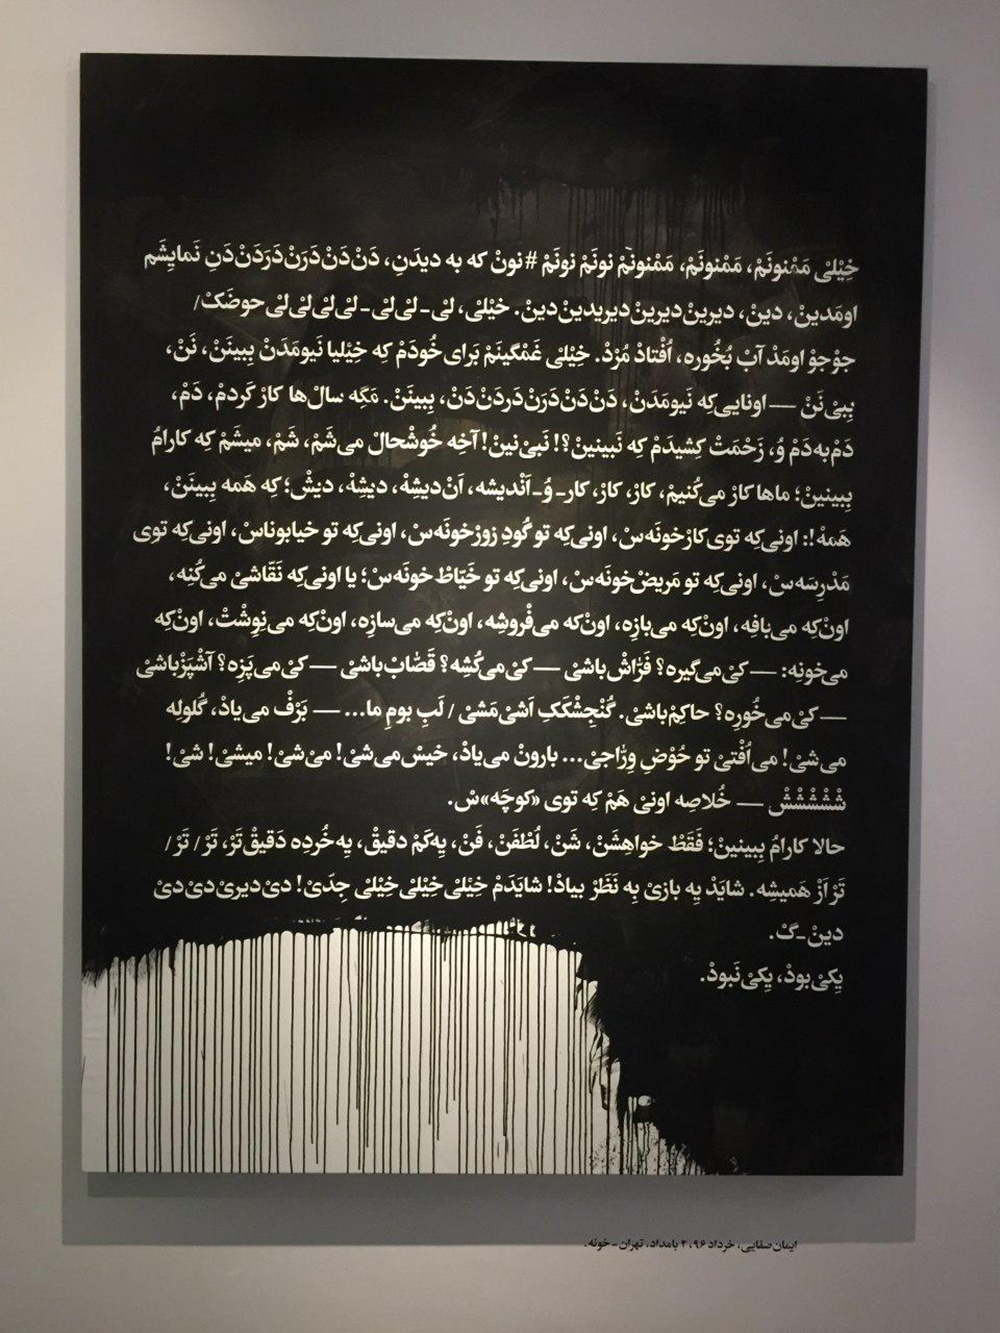 خِیْلیْ مَمْنونَمْ، مَمْنونَمْ، مَمْنونَمْ نونَمْ نونَمْ #نونْ که به دیدَنِ، دَنْ‌دَنْ‌دَرَنْ‌دَرَدَنْ‌دَنِ نَمایِشَم
اومَدینْ، دینْ، دیرینْ‌دیرینْ‌دیریدیدینْ‌دینْ. خیْلی، لیْ-لیْ‌لیْ-لیْ‌لیْ‌لیْ‌لیْ حوضَکْ/
جوْجوْ اومَدْ آبْ بُخُوره، اُفْتادْ مُرْدْ. خِیْلیْ غَمْگینَمْ بَرای خُودَمْ کِه خِیْلیا نَیومَدَنْ بِبینَنْ، نَنْ،
بیبیْ‌نَنْ — اونایی‌کِه نَیومَدَنْ، دَنْ‌دَنْ‌دَرَنْ‌دَردَنْ‌دَنْ، بِبینَنْ. مَگِه سالْ‌ها کارْ کَردمْ، دَمْ،
دَمْ‌به‌دَمْ وُ، زَحْمَتْ کِشیدَمْ کِه نَبینینْ؟! نَبیْ‌نینْ! آخِه خُوشْحالْ می‌شَمْ، شَمْ، میشَمْ کِه کارامُ
بِبینینْ؛ ماها کارْ می‌کُنیمْ، کارْ، کارْ، کار-وُ-اَنْدیشه، اَنْ‌دیشِهْ، دیشِهْ، دیشْ؛ کِه هَمه بِبینَنْ،
هَمهْ!: اونی‌کِه توی کارْخونَه‌سْ، اونی‌کِه تو گُودِ زورْخونَه‌سْ، اونی‌کِه تو خیابوناسْ، اونی‌کِه توی
مَدْرِسَه‌سْ، اونی‌کِه تو مَریضْ‌خونَه‌سْ، اونی‌کِه تو خَیّاطْ‌خونَه‌سْ؛ یا اونی‌کِه نَقّاشیْ می‌کُنِه،
اونْ‌کِه می‌بافِه، اونْ‌کِه می‌بازِه، اونْ‌که می‌فْروشِه، اونْ‌کِه می‌سازِه، اونْ‌که می‌نِوِشْتْ، اونْ‌کِه
می‌خونِه: — کیْ می‌گیره؟ فَرّاشْ باشیْ — کیْ می‌کُشِه؟ قَصّابْ باشیْ — کیْ می‌پَزِه؟ آشْپَزْباشیْ
— کیْ می‌خُورِه؟ حاکِمْ باشیْ. گُنْجِشْکَکِ اَشیْ‌مَشیْ / لَبِ بومِ ما... — بَرْفْ می‌یادْ، گُلولِه
می‌شیْ! می‌اُفْتیْ تو حُوْضِ وِرّاجیْ... بارونْ می‌یادْ، خیسْ می‌شیْ! میْ‌شیْ! میشیْ! شیْ!
شْشْشْشْشْشْ — خُلاصِه اونیْ هَمْ کِه توی «کوچَه»سْ.
حالا کارامُ بِبینینْ؛ فَقَطْ خواهِشَنْ، شَنْ، لُطْفَنْ، فَنْ، یِه‌کَمْ دقیقْ، یِه خُرْدِه دَقیقْ‌تَرْ، تَرْ / تَرْ/
تَرْ اَزْ هَمیشِه. شایَدْ یِه بازیْ بِه نَظَرْ بیادْ! شایَدَمْ خِیْلیْ خِیْلیْ خِیْلیْ جِدّیْ! دیْ‌دیریْ‌دیْ‌دیْ
دینْ-گْ.
یِکیْ بودْ، یِکیْ نَبودْ.
ایمان صفایی، خرداد ۹۶، ۲ بامداد، تهران - خونه.